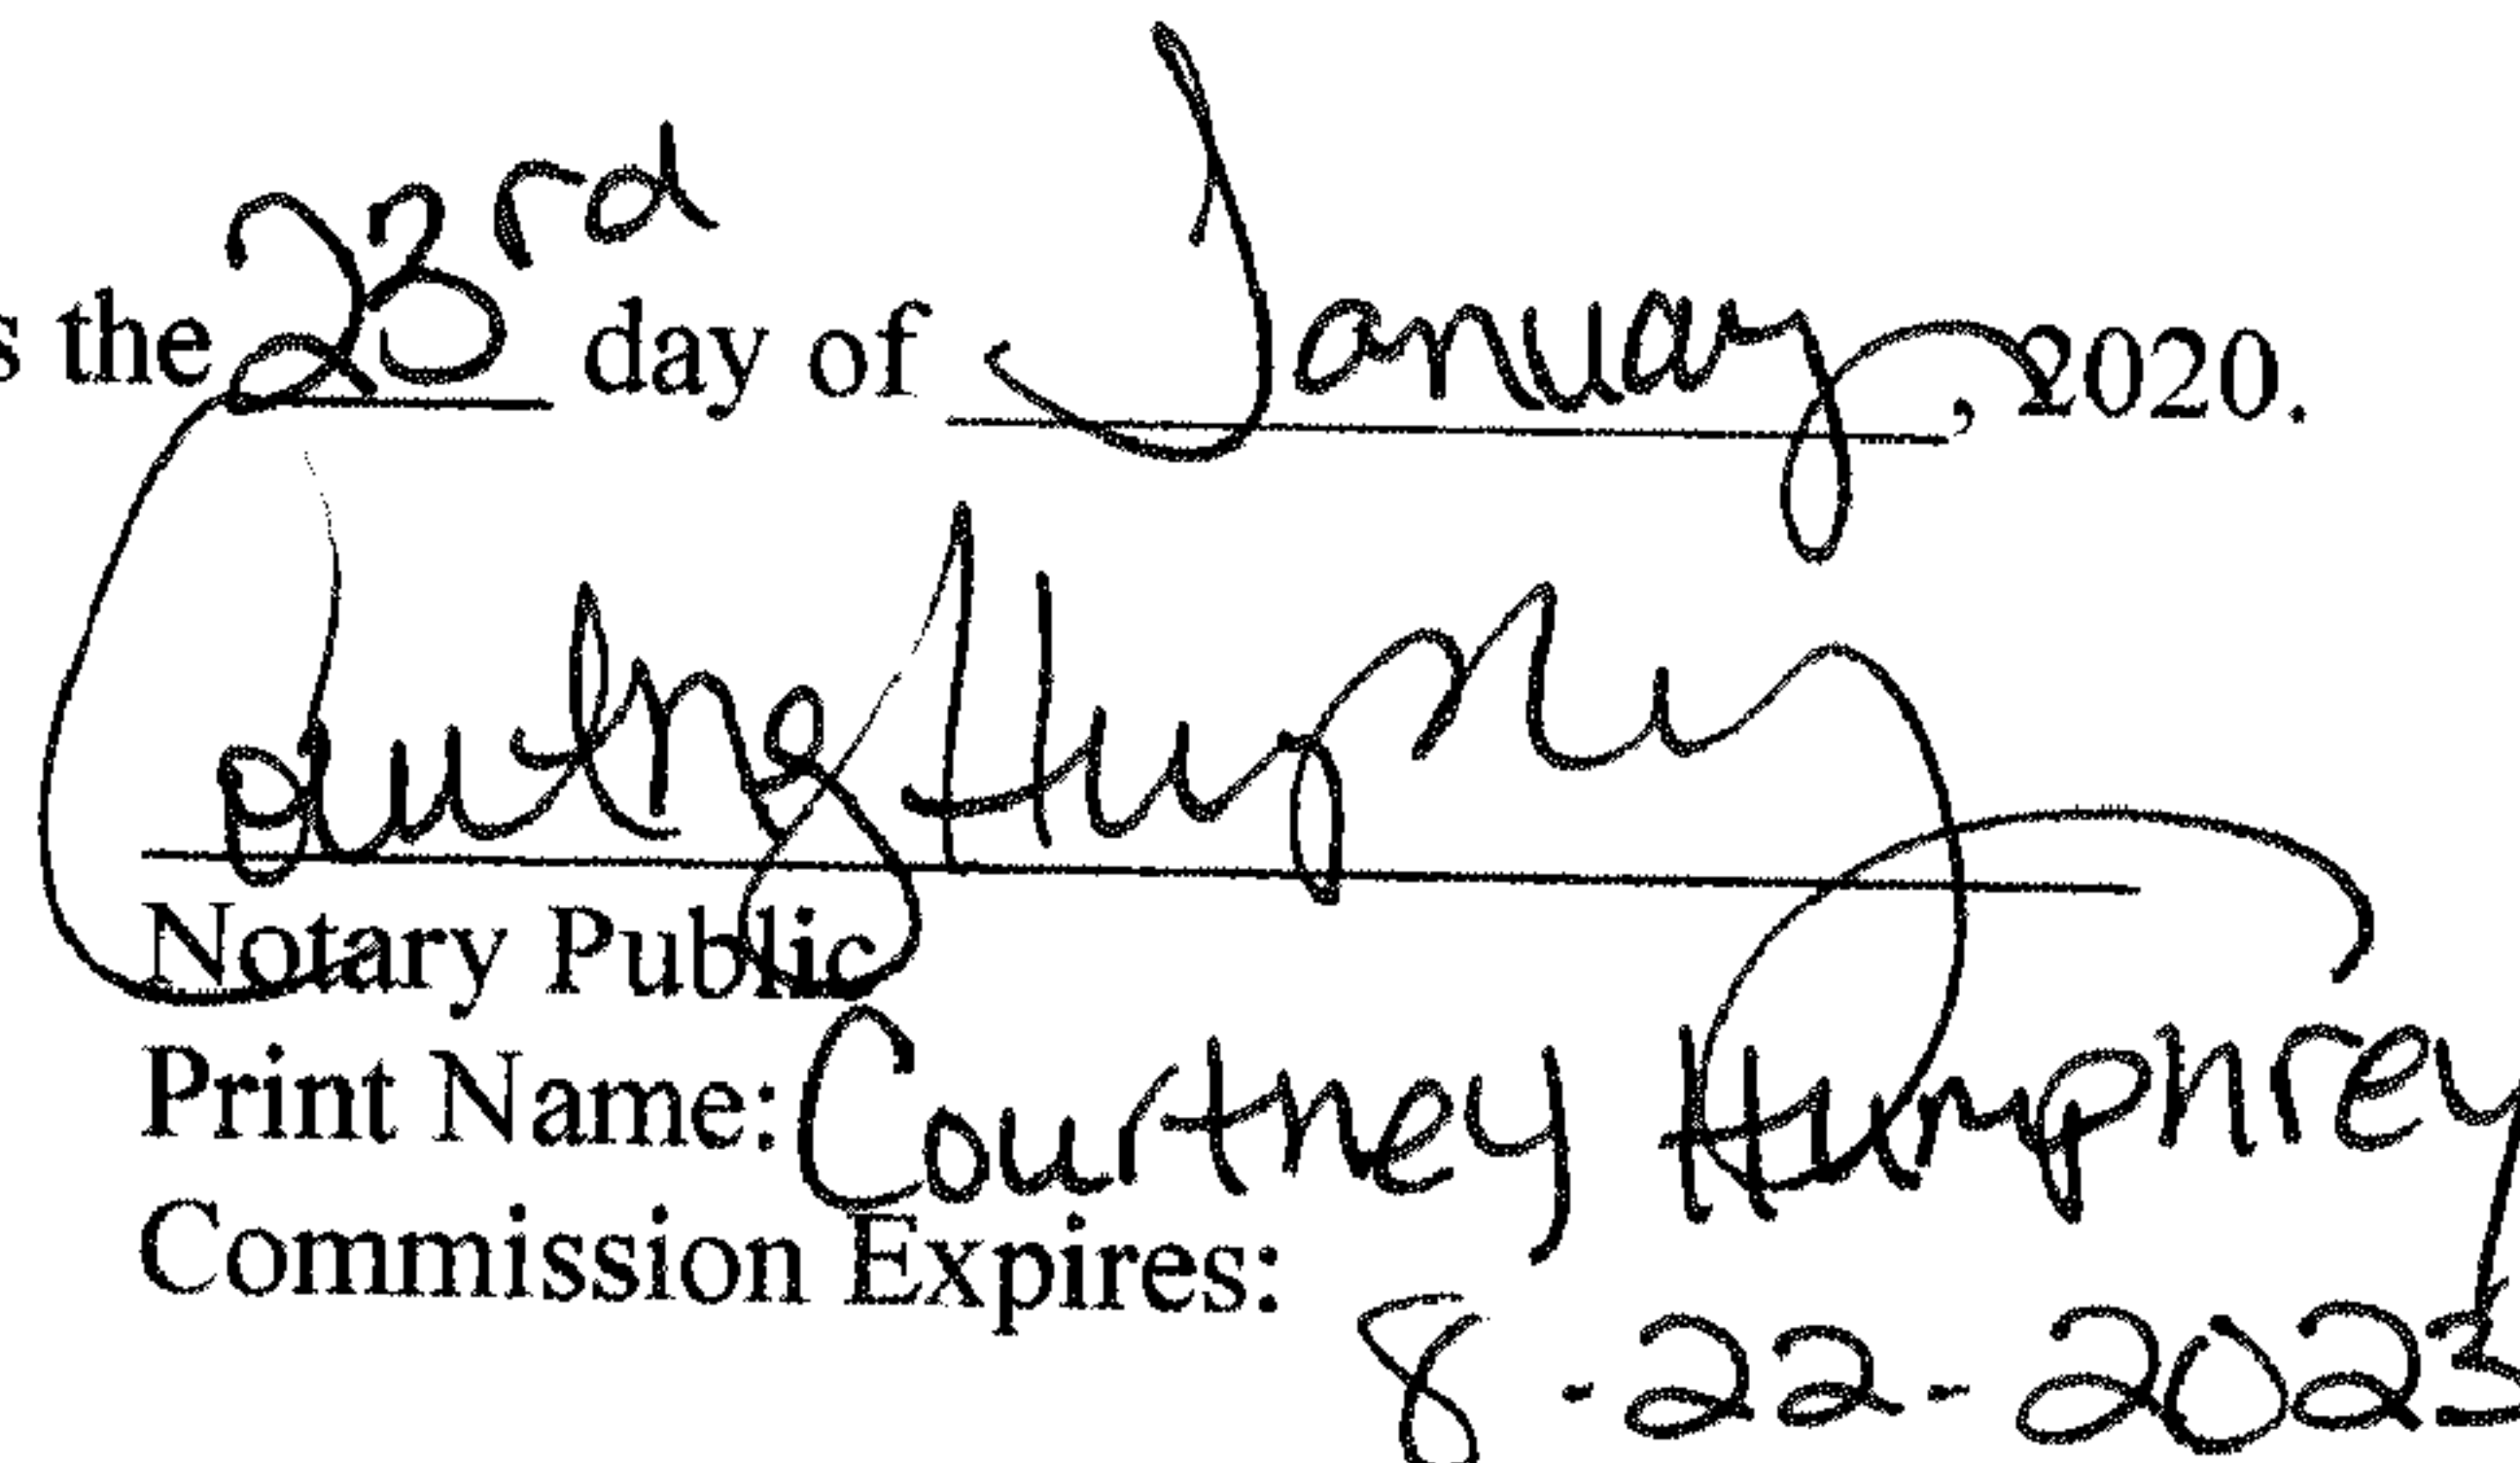 s the 23rd day of January, 2020.
Courtney Humphrey
Notary Public
Print Name: Courtney Humphrey
Commission Expires:
8-22-2023